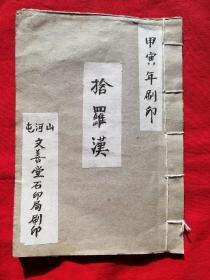 甲寅年刷印
捨羅漢
山河屯
文善堂石印局刷印